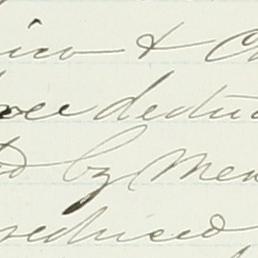 ico & Ch
ee deduc
d by Mex
reduced